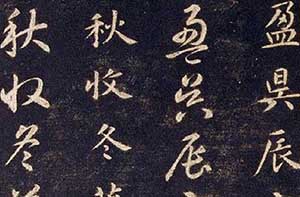 盈昃辰
盈昃辰
秋收冬
秋收冬